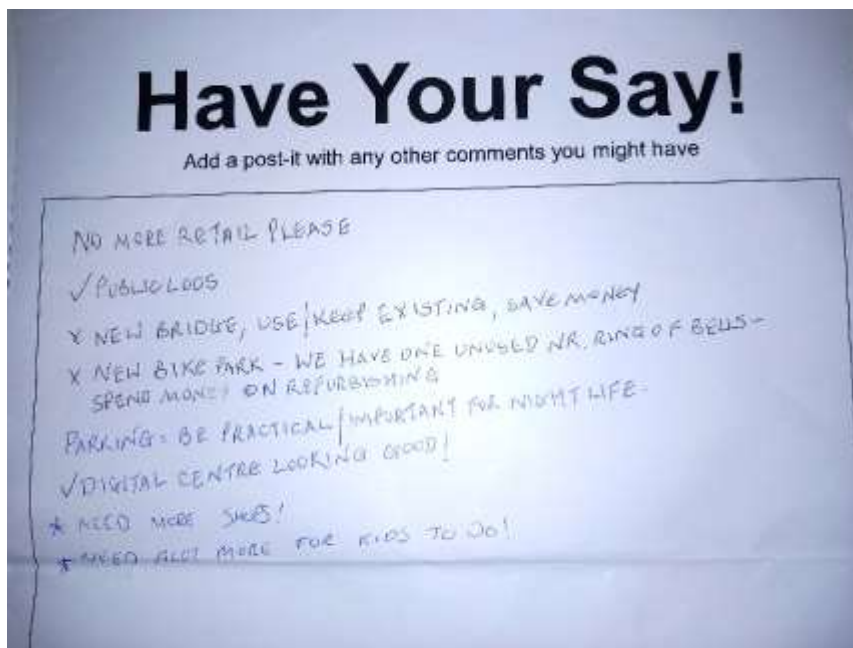 Have Your Say!
Add a post-it with any other comments you might have
NO MORE RETAIL PLEASE
✓ PUBLIC LOOS
X NEW BRIDGE, USE/KEEP EXISTING, SAVE MONEY
X NEW BIKE PARK - WE HAVE ONE UNUSED NR. RING OF BELLS -
SPEND MONEY ON REFURBISHING
PARKING: BE PRACTICAL/IMPORTANT FOR NIGHT LIFE.
✓ DIGITAL CENTRE LOOKING GOOD!
* NEED MORE SHOPS!
* NEED ALOT MORE FOR KIDS TO DO!